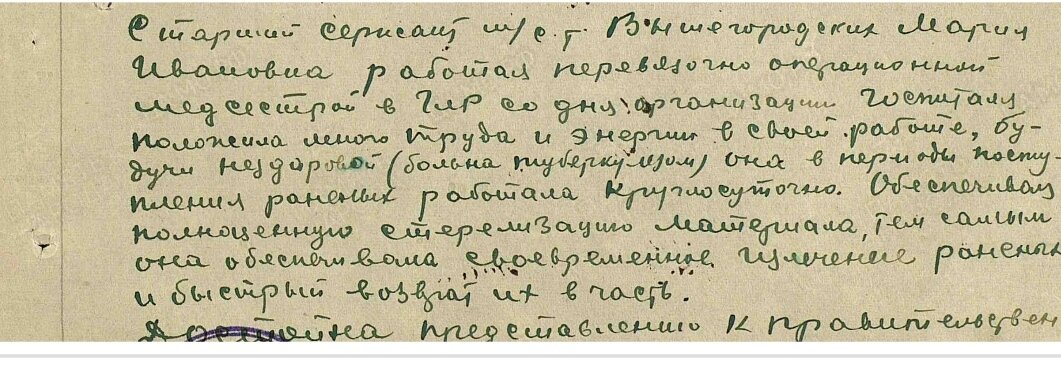 Старший сержант м/с.г. Вышегородских Мария
Ивановна работая перевязочно операционной
медсестрой в ГЛР со дня организации госпиталя
положила много труда и энергии в своей работе, бу-
дучи нездоровой (больна туберкулезом) она в периоды посту-
пления раненых работала круглосуточно. Обеспечивая
полноценную стерелизацию материала, тем самым
она обеспечивала своевременное излечение раненых
и быстрый возврат их в часть.
Достойна представлению к правительствен